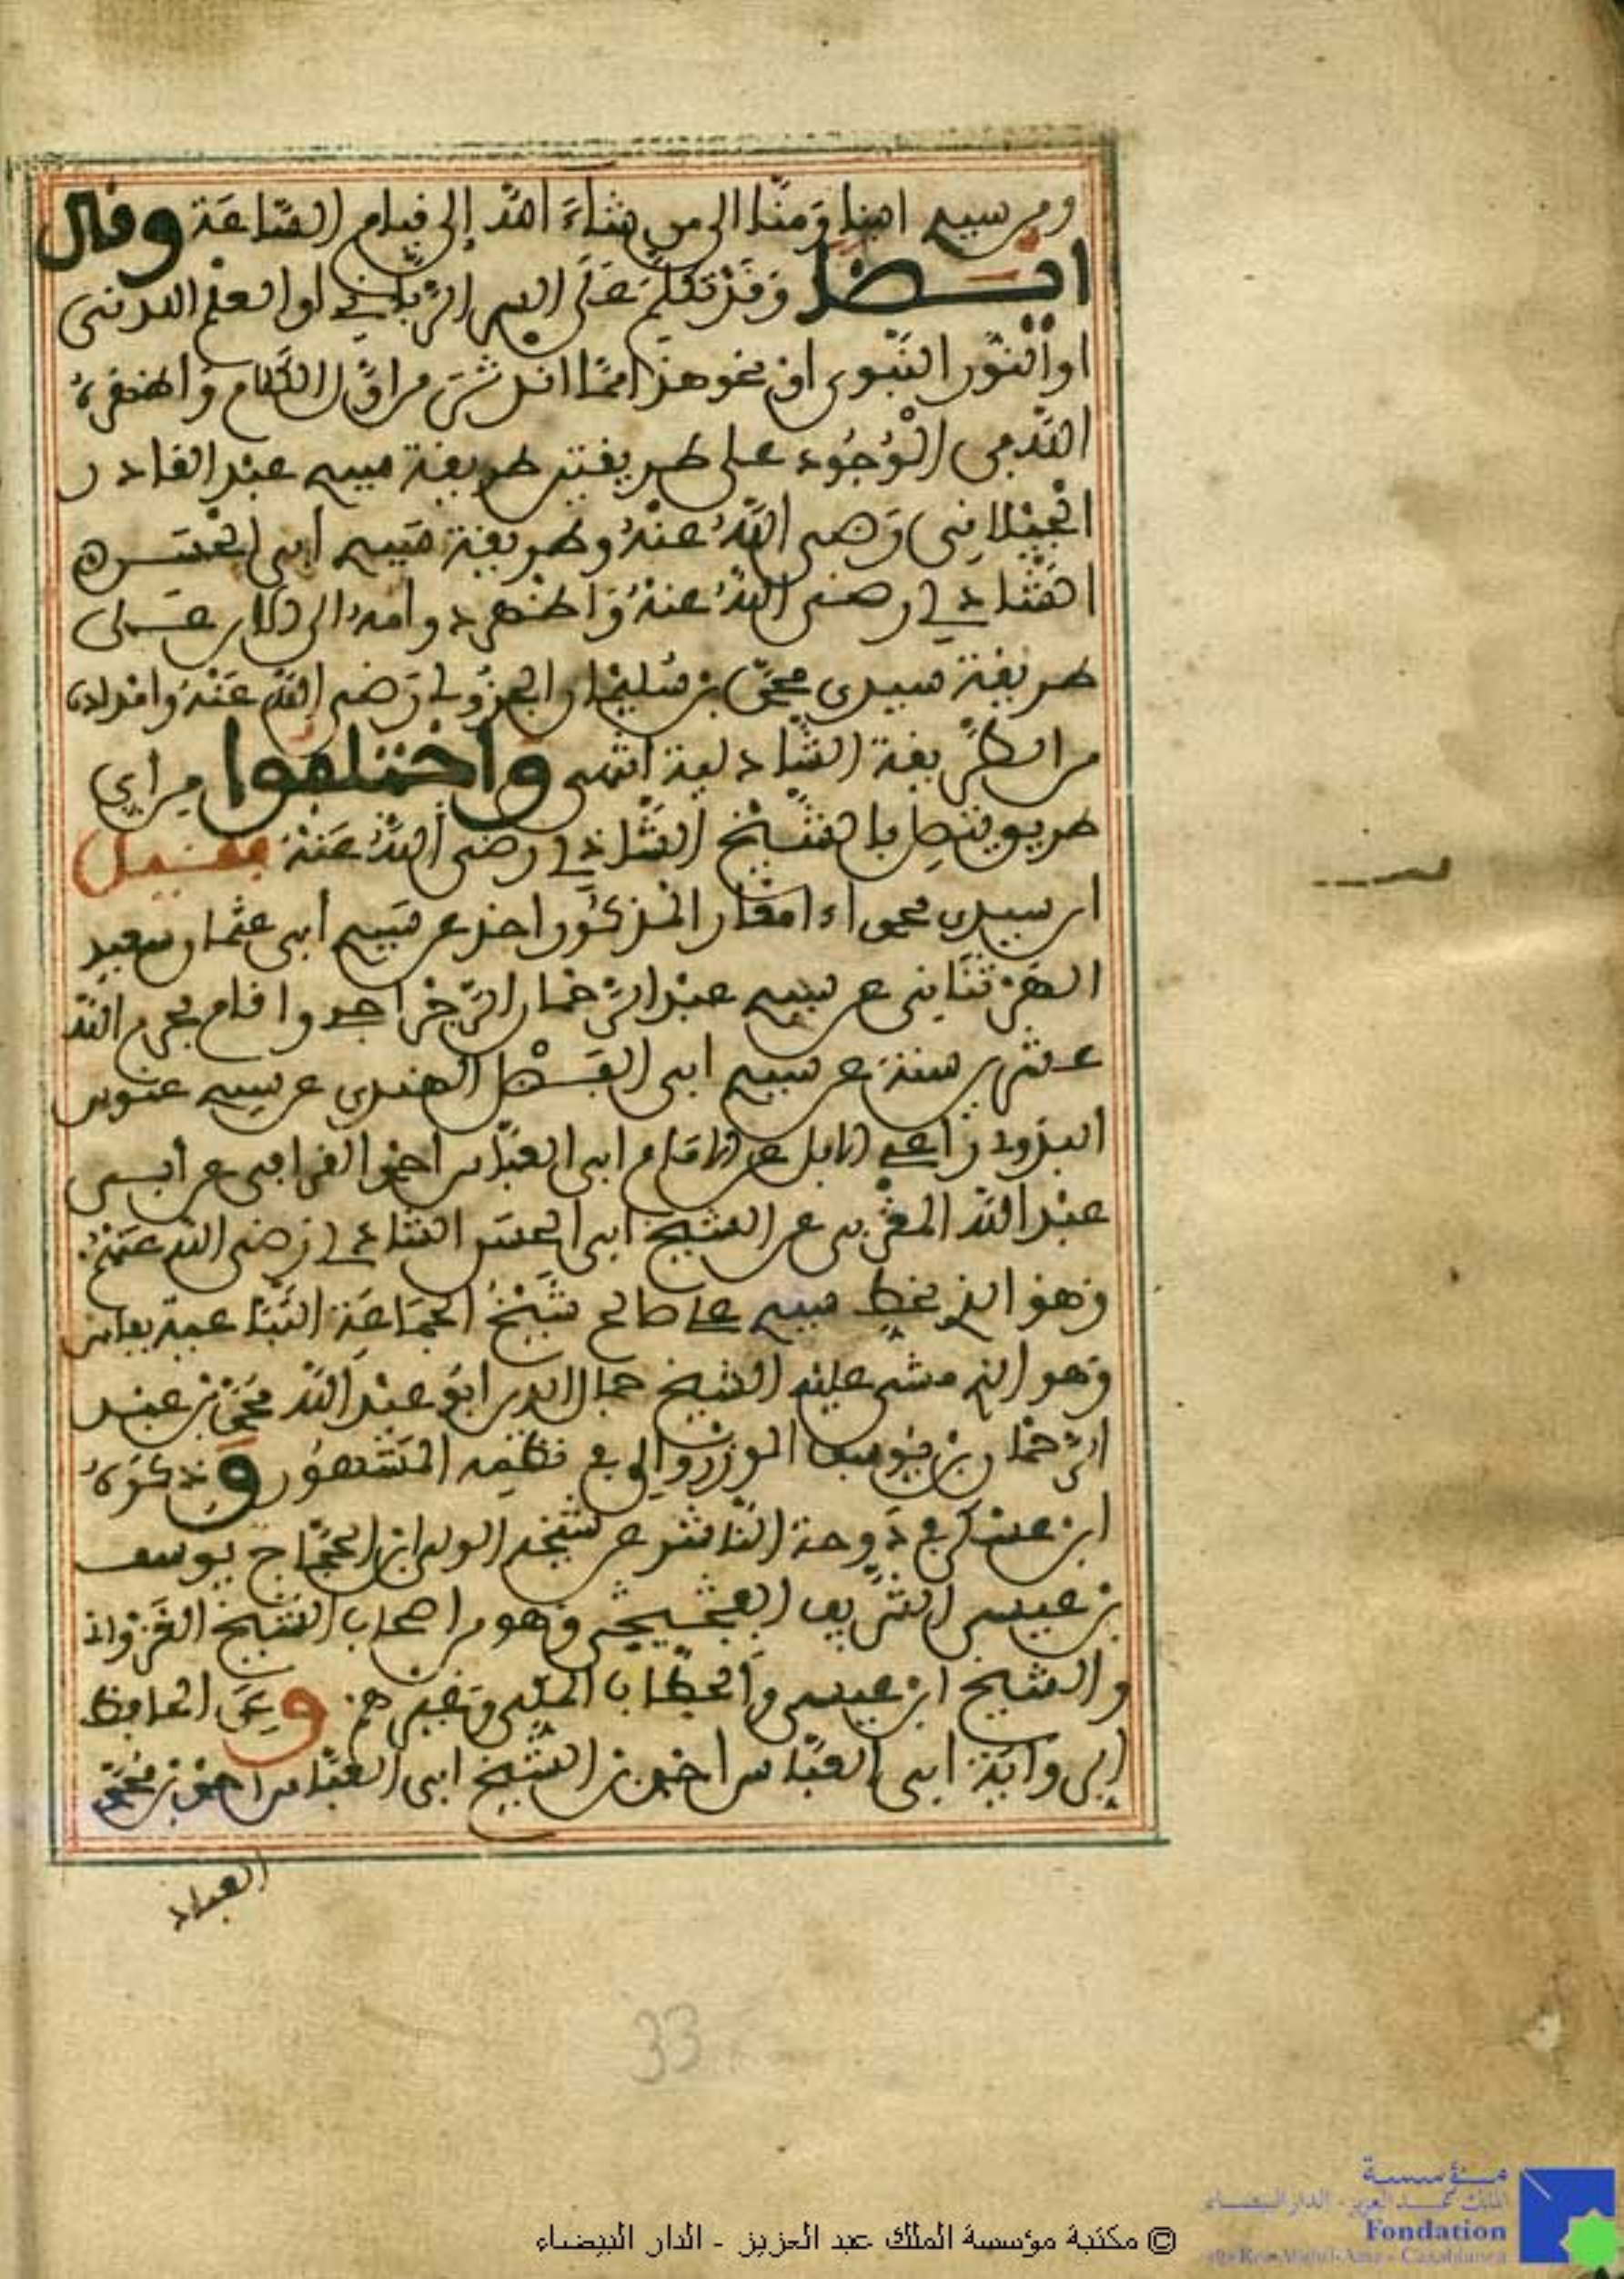 ومن سيدي ابينا ومنا الى من شاء الله إلى قيام الساعة وقال
ايضا وقد تكلم على السر الرباني او العلم اللدني
او النور النبوي او نحو هذا مما اندثر من اول الكلام واظهره
الله في الوجود على طريقتين طريقة سيدي عبد القادر
الجيلاني رضي الله عنه وطريقة سيدي ابي الحسن
الشاذلي رضي الله عنه واظهر دوامه الى الان على
طريقة سيدي محمد بن سليمان الجزولي رضي الله عنه وامداده
من الطريقة الشاذلية انتهى واختلفوا من اي
طريق يتصل بالشيخ الشاذلي رضي الله عنه فقيل
ان سيدي محمد امغار المذكور اخذ عن سيدي ابي عثمان سعيد
الهرتناني عن سيدي عبد الرحمان الرجراجي واقام بحرم الله
عشرين سنة عن سيدي ابي الفضل الهندي عن سيدي عنوس
البدوي راعي الابل عن الامام ابي العباس احمد القرافي عن ابي
عبد الله المغربي عن الشيخ ابي الحسن الشاذلي رضي الله عنه
وهو الذي بخط سيدي علي صالح شيخ الجماعة التباعية بفاس
وهو الذي مشى عليه الشيخ جمال الدين ابو عبد الله محمد بن عبد
الرحمان بن يوسف الوزروالي في نظمه المشهور وذكره
ابن عسكر في دوحة الناشر عن شيخه الولي ابي الحجاج يوسف
بن عيسى الشريف الفجيجي وهو من اصحاب الشيخ الغزواني
والشيخ ابن عيسى والحطاب المكي وغيرهم وعن الحافظ
الرواية ابي العباس احمد بن الشيخ ابي العباس احمد بن محمد
العباد
33
© مكتبة مؤسسة الملك عبد العزيز - الدار البيضاء
مؤسسة
الملك عبد العزيز - الدار البيضاء
Fondation
du Roi Abdul-Aziz - Casablanca